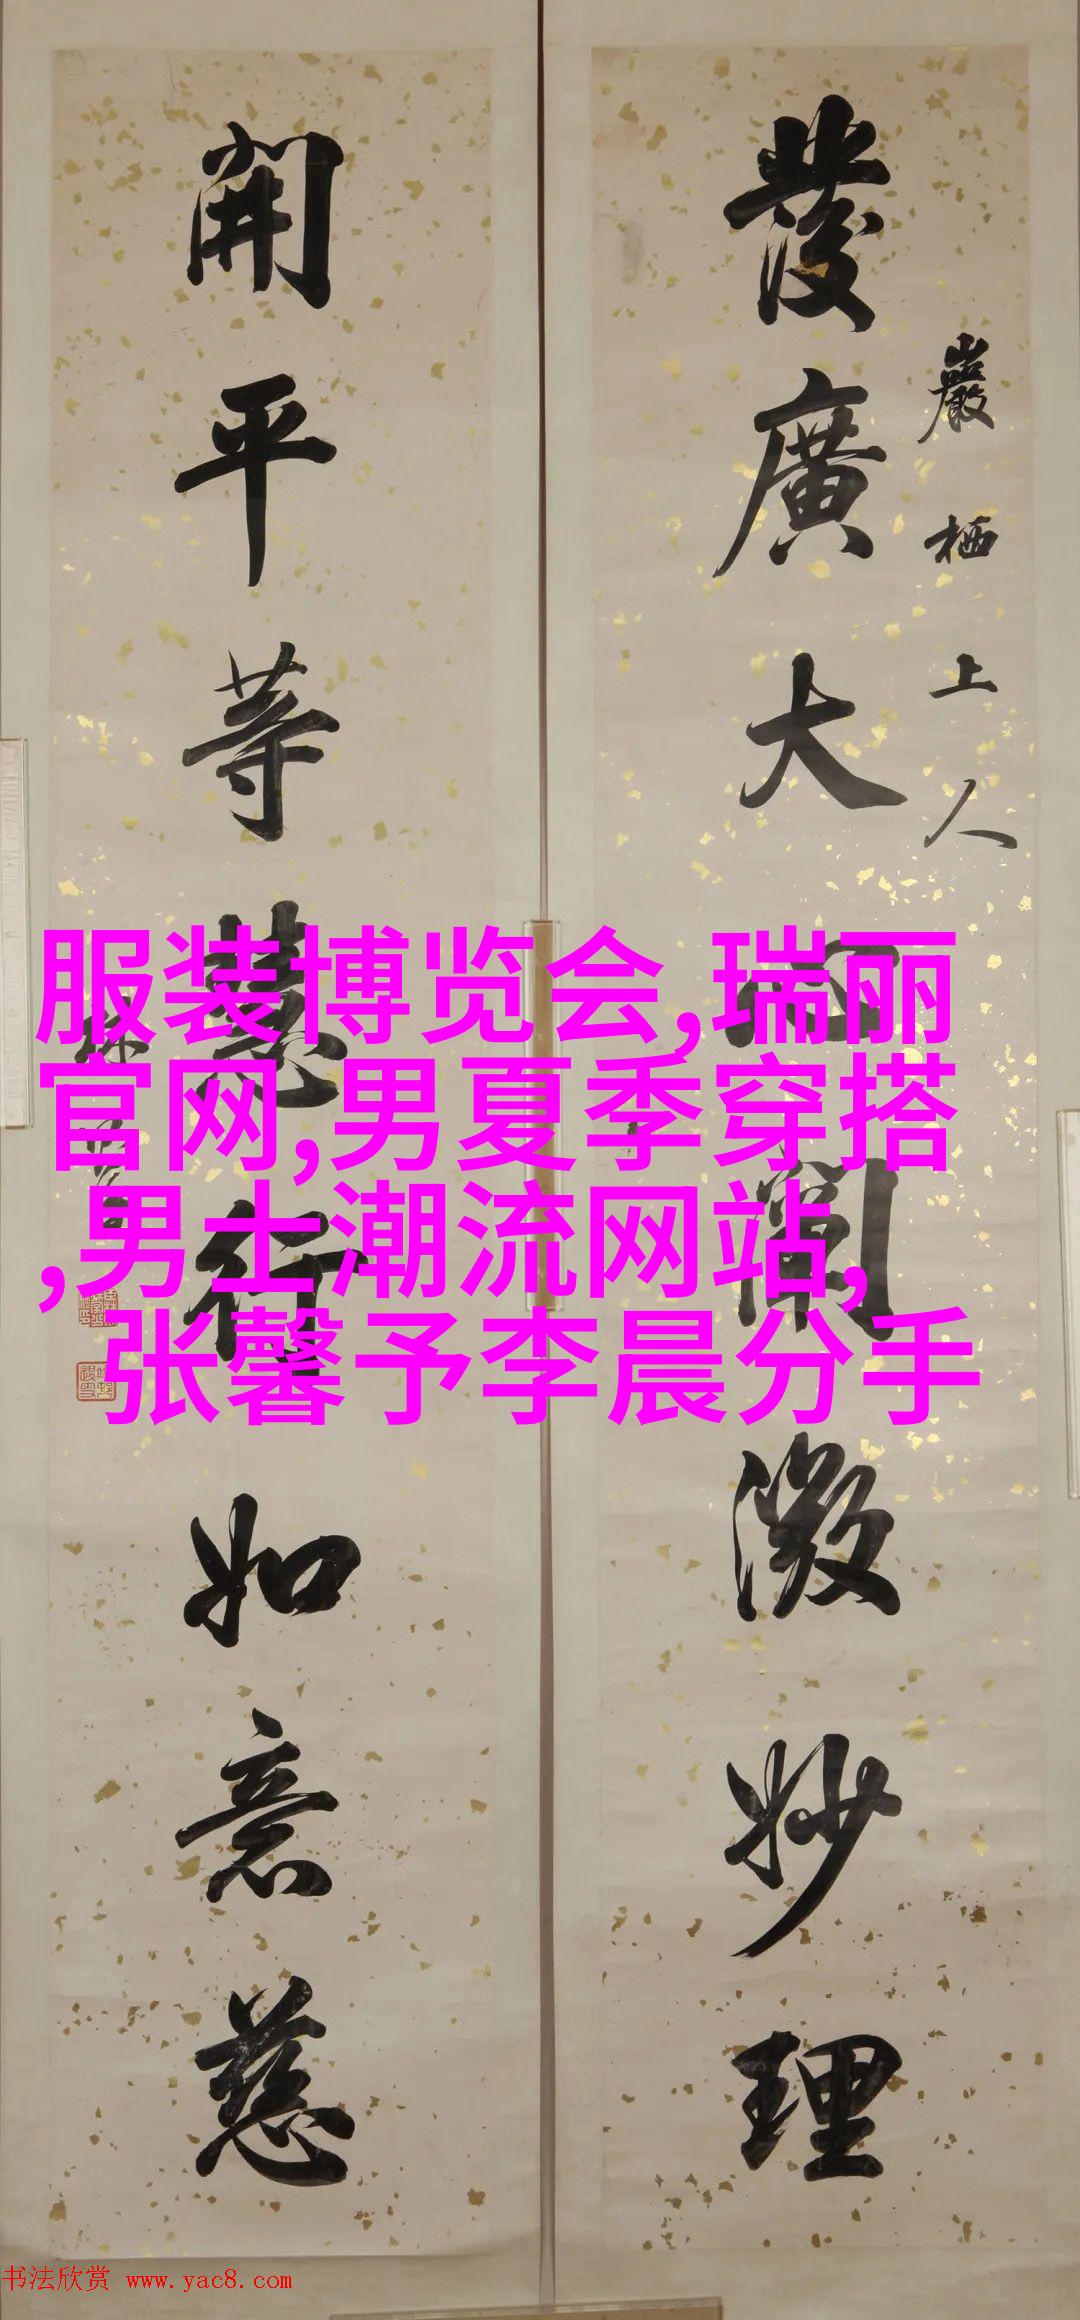 巖栖上人
發廣大心闡微妙理
開平等慧行如意慈
服装博览会,瑞丽
官网,男夏季穿搭
,男士潮流网站,
张馨予李晨分手
书法欣赏 www.yac8.com